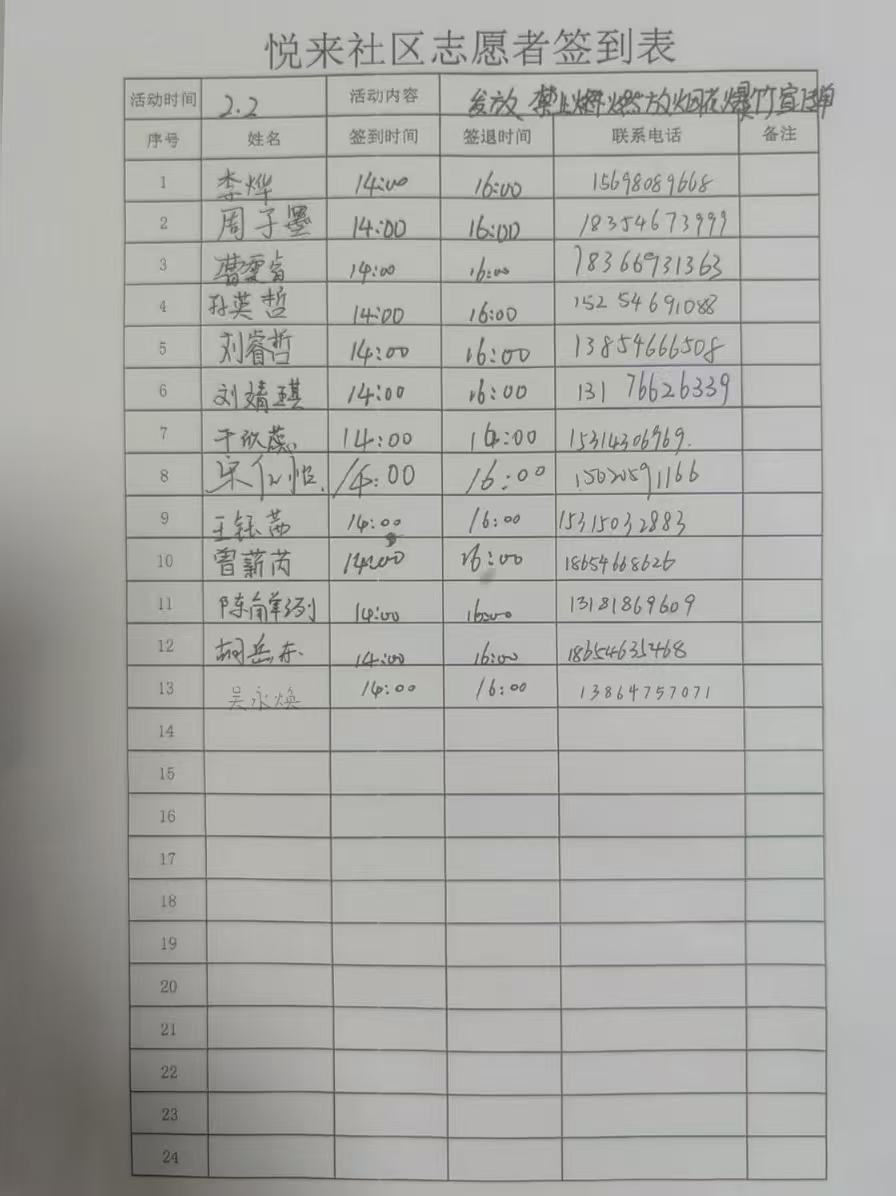 悦来社区志愿者签到表
活动时间 2.2 活动内容 发放 禁止燃放烟花爆竹宣传单
序号 姓名 签到时间 签退时间 联系电话 备注
1 李烨 14:00 16:00 15698089668
2 周子墨 14:00 16:00 18354673999
3 14:00 16:00 18366931363
4 孙英哲 14:00 16:00 15254691088
5 刘睿哲 14:00 16:00 13854666508
6 刘婧琪 14:00 16:00 13176626339
7 于欣蕊 14:00 16:00 15314306969.
8 宋 14:00 16:00
9 王钰茜 14:00 16:00 15315032883
10 曾薪芮 14:00 16:00 18654668626
11 陈 14:00 16:00 13181869609
12 胡岳东 14:00 16:00
13 吴永焕 14:00 16:00 13864757071
14
15
16
17
18
19
20
21
22
23
24